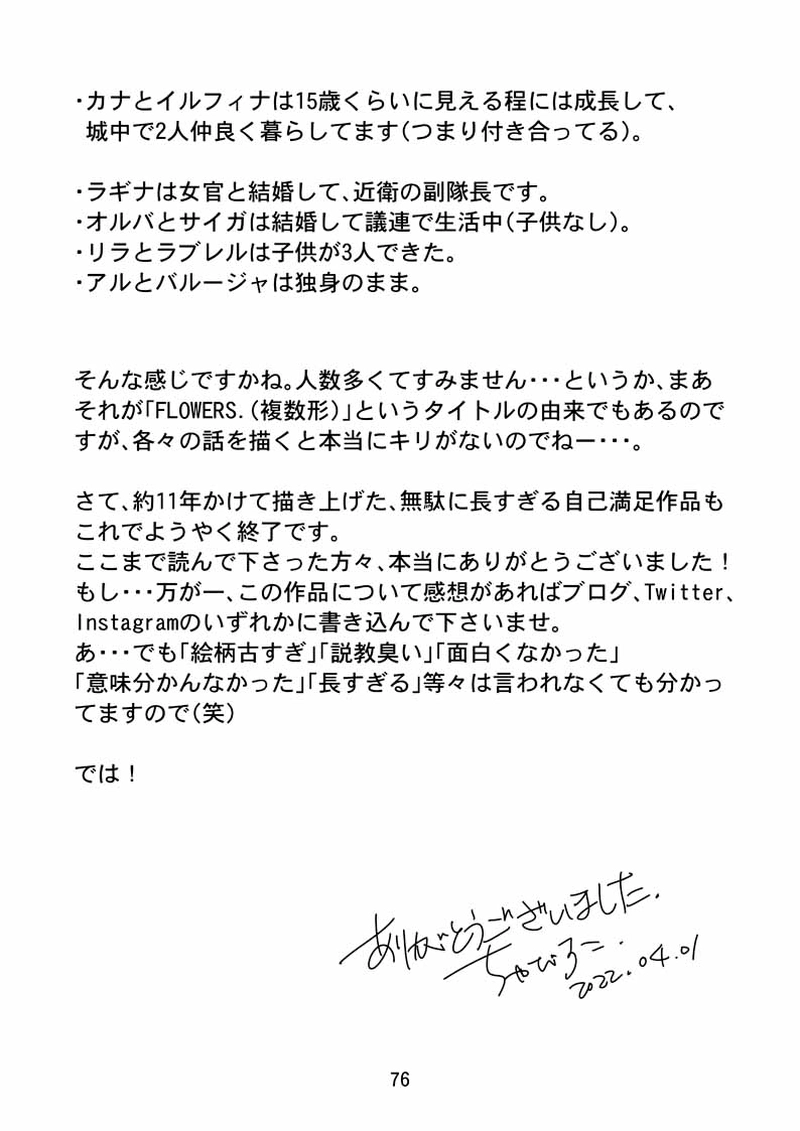 ・カナとイルフィナは15歳くらいに見える程には成長して、
城中で2人仲良く暮らしてます(つまり付き合ってる)。
・ラギナは女官と結婚して、近衛の副隊長です。
・オルバとサイガは結婚して議連で生活中(子供なし)。
・リラとラブレルは子供が3人できた。
・アルとバルージャは独身のまま。
そんな感じですかね。人数多くてすみません・・・というか、まあ
それが「FLOWERS.(複数形)」というタイトルの由来でもあるので
すが、各々の話を描くと本当にキリがないのでねー・・・。
さて、約11年かけて描き上げた、無駄に長すぎる自己満足作品も
これでようやく終了です。
ここまで読んで下さった方々、本当にありがとうございました!
もし・・・万が一、この作品について感想があればブログ、Twitter、
Instagramのいずれかに書き込んで下さいませ。
あ・・・でも「絵柄古すぎ」「説教臭い」「面白くなかった」
「意味分かんなかった」「長すぎる」等々は言われなくても分かっ
てますので(笑)
では!
ありがとうございました.
ちゃびろこ.
2022.04.01
76